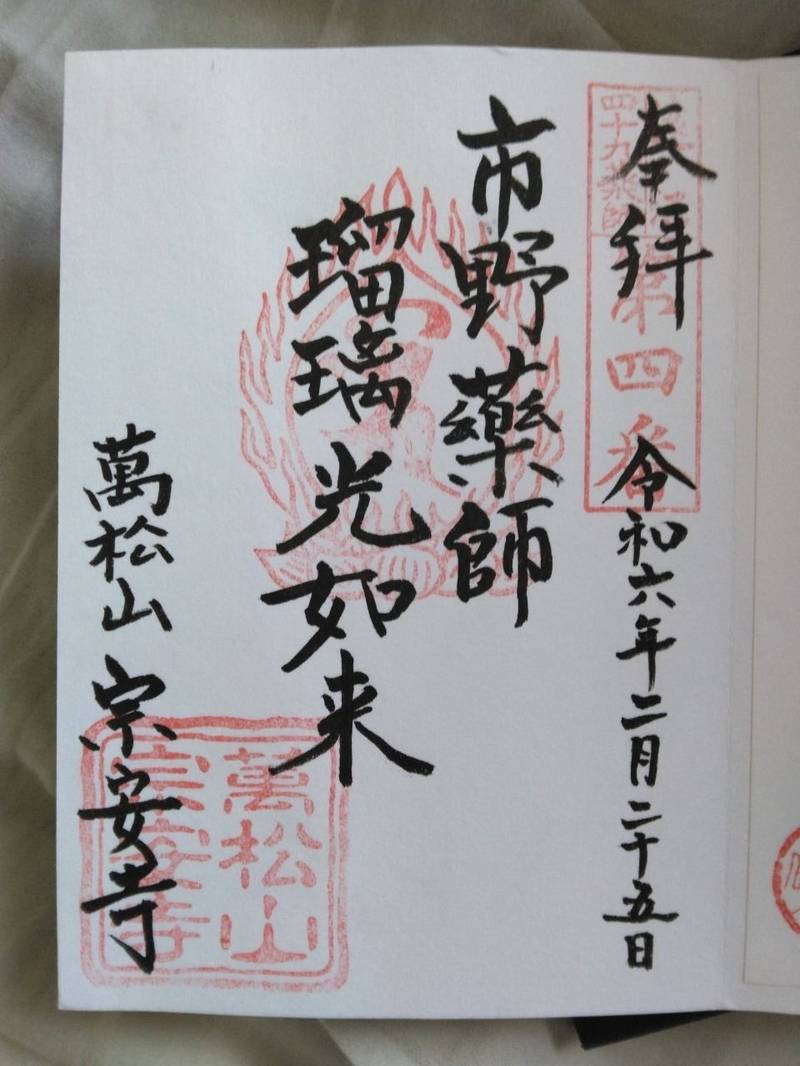 奉拝
令和六年二月二十五日
四十九薬師
第四番
市野薬師
瑠璃光如来
萬松山 宗安寺
萬松山
宗安寺